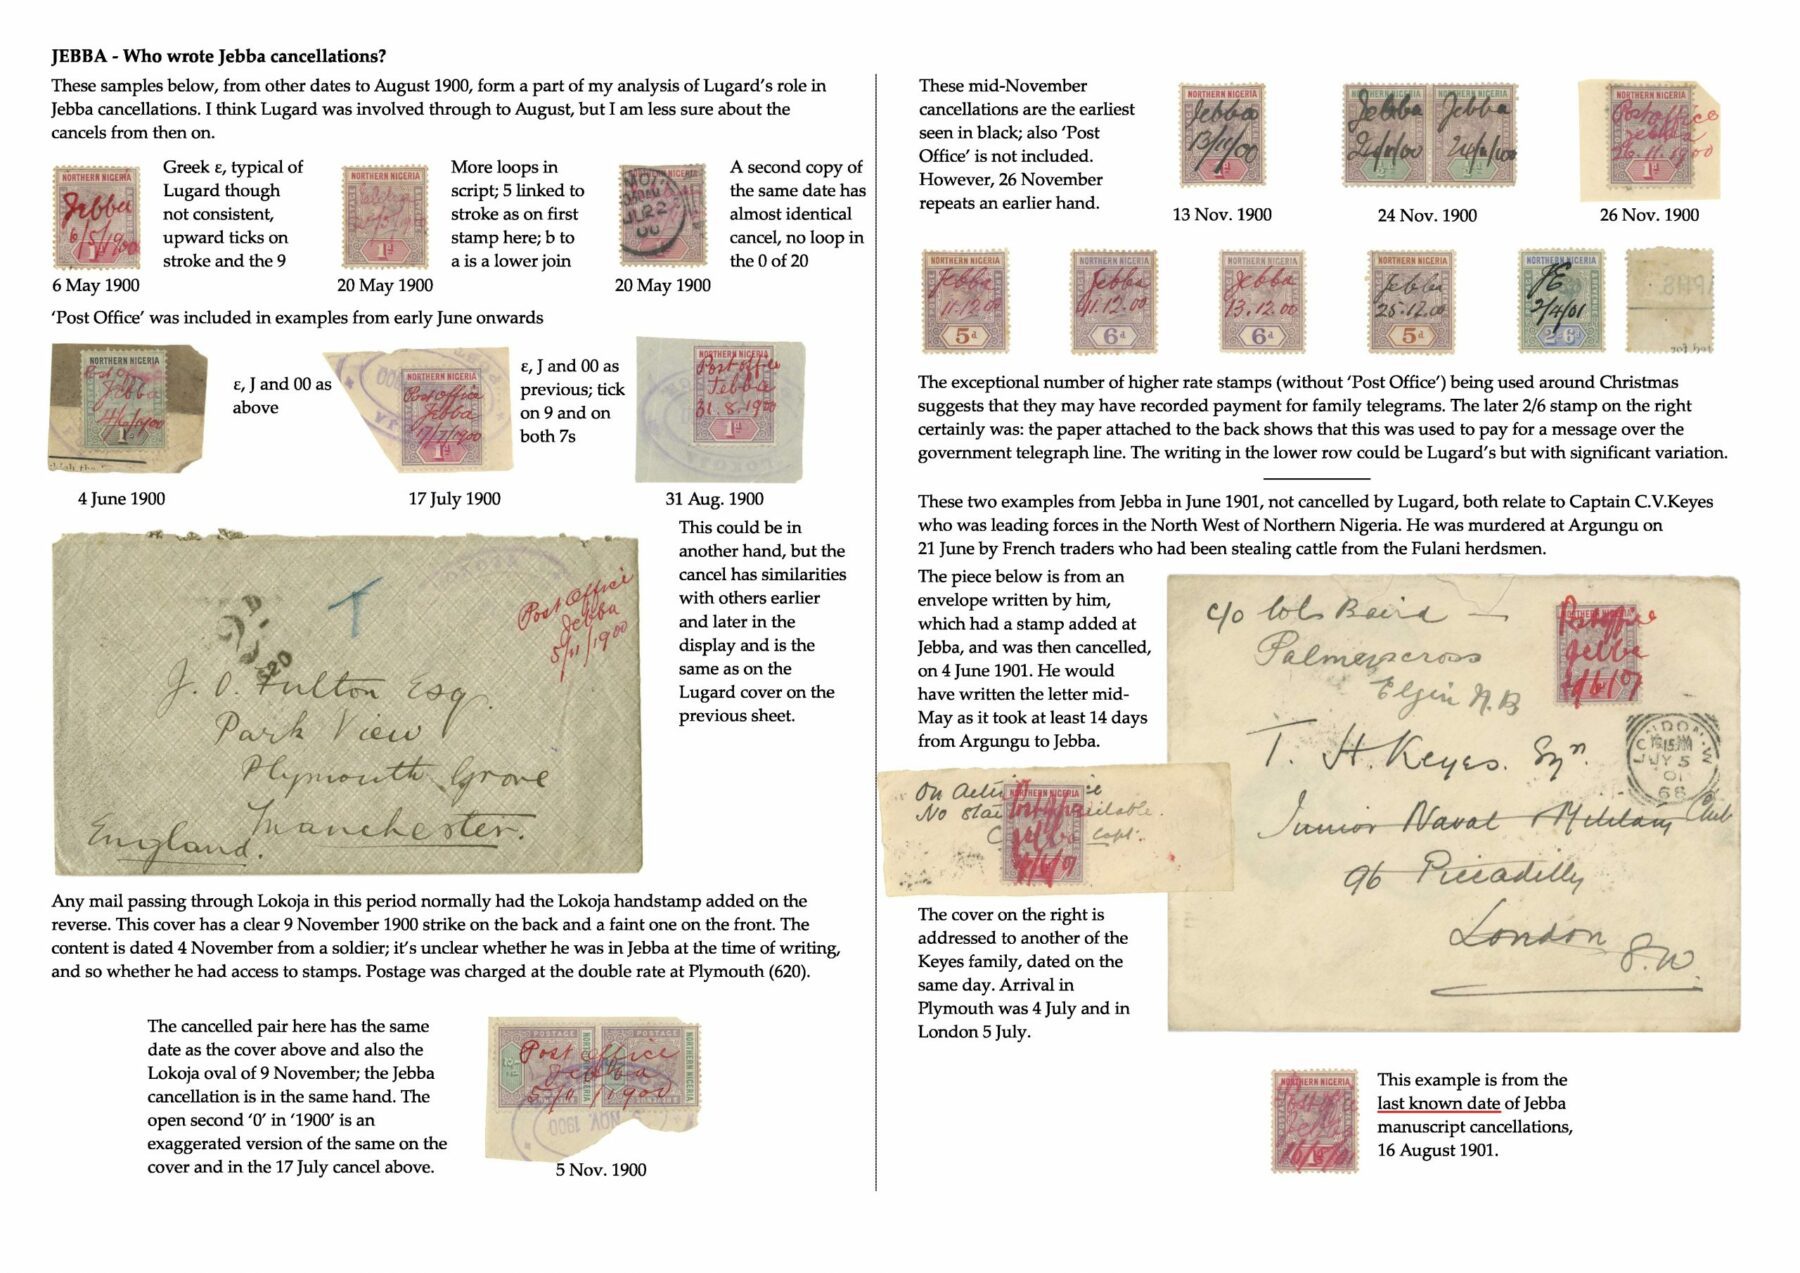 JEBBA - Who wrote Jebba cancellations?
These samples below, from other dates to August 1900, form a part of my analysis of Lugard's role in
Jebba cancellations. I think Lugard was involved through to August, but I am less sure about the
cancels from then on.
NORTHERN NIGERIA
Jebba
6/5/1900
1d
6 May 1900
Greek ε, typical of
Lugard though
not consistent,
upward ticks on
stroke and the 9
NORTHERN NIGERIA
1d
20 May 1900
More loops in
script; 5 linked to
stroke as on first
stamp here; b to
a is a lower join
JU 22
00
20 May 1900
A second copy of
the same date has
almost identical
cancel, no loop in
the 0 of 20
'Post Office' was included in examples from early June onwards
NORTHERN NIGERIA
Post Office
Jebba
4/6/1900
1d
4 June 1900
ε, J and 00 as
above
NORTHERN NIGERIA
Post office
Jebba
17/7/1900
1d
17 July 1900
ε, J and 00 as
previous; tick
on 9 and on
both 7s
NORTHERN NIGERIA
Post office
Jebba
31.8.1900
1d
31 Aug. 1900
T
Post Office
Jebba
5/11/1900
20
J. O. Fulton Esq.
Park View
Plymouth Grove
Manchester.
England.
This could be in
another hand, but the
cancel has similarities
with others earlier
and later in the
display and is the
same as on the
Lugard cover on the
previous sheet.
Any mail passing through Lokoja in this period normally had the Lokoja handstamp added on the
reverse. This cover has a clear 9 November 1900 strike on the back and a faint one on the front. The
content is dated 4 November from a soldier; it's unclear whether he was in Jebba at the time of writing,
and so whether he had access to stamps. Postage was charged at the double rate at Plymouth (620).
The cancelled pair here has the same
date as the cover above and also the
Lokoja oval of 9 November; the Jebba
cancellation is in the same hand. The
open second '0' in '1900' is an
exaggerated version of the same on the
cover and in the 17 July cancel above.
POSTAGE POSTAGE
NORTHERN NIGERIA
Post office
Jebba
5/11/1900
NOV. 1900
5 Nov. 1900
These mid-November
cancellations are the earliest
seen in black; also 'Post
Office' is not included.
However, 26 November
repeats an earlier hand.
NORTHERN NIGERIA
Jebba
13/11/00
1d
13 Nov. 1900
NORTHERN NIGERIA NORTHERN NIGERIA
Jebba Jebba
24/11/00 24/11/00
24 Nov. 1900
NORTHERN NIGERIA
Post office
Jebba
26.11.1900
1d
26 Nov. 1900
NORTHERN NIGERIA
Jebba
11.12.00
5d
NORTHERN NIGERIA
Jebba
11.12.00
6d
NORTHERN NIGERIA
Jebba
13.12.00
6d
NORTHERN NIGERIA
Jebba
25.12.00
5d
NORTHERN NIGERIA
JE
2/4/01
2/6
The exceptional number of higher rate stamps (without 'Post Office') being used around Christmas
suggests that they may have recorded payment for family telegrams. The later 2/6 stamp on the right
certainly was: the paper attached to the back shows that this was used to pay for a message over the
government telegraph line. The writing in the lower row could be Lugard's but with significant variation.
These two examples from Jebba in June 1901, not cancelled by Lugard, both relate to Captain C.V.Keyes
who was leading forces in the North West of Northern Nigeria. He was murdered at Argungu on
21 June by French traders who had been stealing cattle from the Fulani herdsmen.
The piece below is from an
envelope written by him,
which had a stamp added at
Jebba, and was then cancelled,
on 4 June 1901. He would
have written the letter mid-
May as it took at least 14 days
from Argungu to Jebba.
On
No
NORTHERN NIGERIA
Post Office
Jebba
4/6/01
Capt.
c/o Cols Baird
Palmerscross
Elgin N.B
Post office
Jebba
T. H. Keyes. Esqr.
Junior Naval & Military Club
96 Piccadilly
London
S.W.
LONDON.W
JY 5
01
66
The cover on the right is
addressed to another of the
Keyes family, dated on the
same day. Arrival in
Plymouth was 4 July and in
London 5 July.
NORTHERN NIGERIA
Post office
Jebba
1d
This example is from the
last known date of Jebba
manuscript cancellations,
16 August 1901.